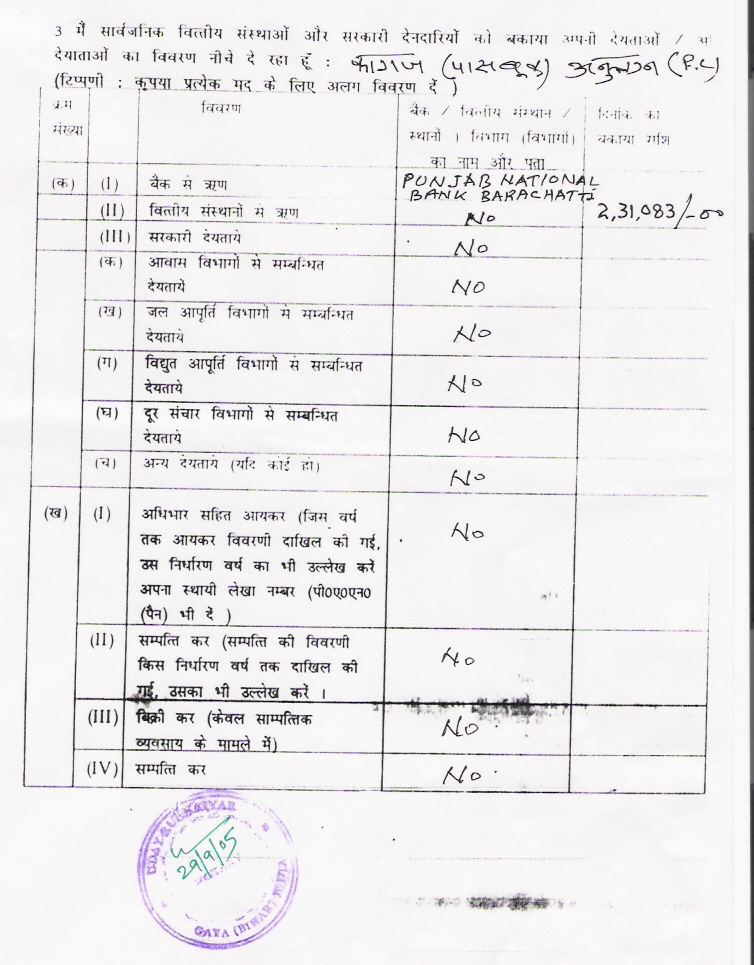 3 मैं सार्वजनिक वित्तीय संस्थाओं और सरकारी देनदारियों को बकाया अपनी देयताओं /
देयताओं का विवरण नीचे दे रहा हूँ : कागज (पासबुक) अनुलग्न (P.C)
(टिप्पणी : कृपया प्रत्येक मद के लिए अलग विवरण दें )
क्रम संख्या विवरण बैंक / वित्तीय संस्थान / दिनांक को
स्थानों ) विभाग (विभागों) बकाया राशि
का नाम और पता
(क) (I) बैंक से ऋण PUNJAB NATIONAL
BANK BARACHATTI
(II) वित्तीय संस्थानों से ऋण NO 2,31,083/-00
(III) सरकारी देयताये NO
(क) आवास विभागों से सम्बन्धित
देयताये NO
(ख) जल आपूर्ति विभागों से सम्बन्धित
देयताये NO
(ग) विद्युत आपूर्ति विभागों से सम्बन्धित
देयताये NO
(घ) दूर संचार विभागों से सम्बन्धित
देयताये NO
(च) अन्य देयताये (यदि कोई हो) NO
(ख) (I) अधिभार सहित आयकर (जिस वर्ष NO
तक आयकर विवरणी दाखिल की गई,
उस निर्धारण वर्ष का भी उल्लेख करें
अपना स्थायी लेखा नम्बर (पी०ए०एन०
(पैन) भी दें )
(II) सम्पत्ति कर (सम्पत्ति की विवरणी NO
किस निर्धारण वर्ष तक दाखिल की
गई, उसका भी उल्लेख करें ।
(III) बिक्री कर (केवल साम्पत्तिक NO
व्यवसाय के मामले में)
(IV) सम्पत्ति कर NO
29/9/05
NOTARY
GAYA (BIHAR) INDIA